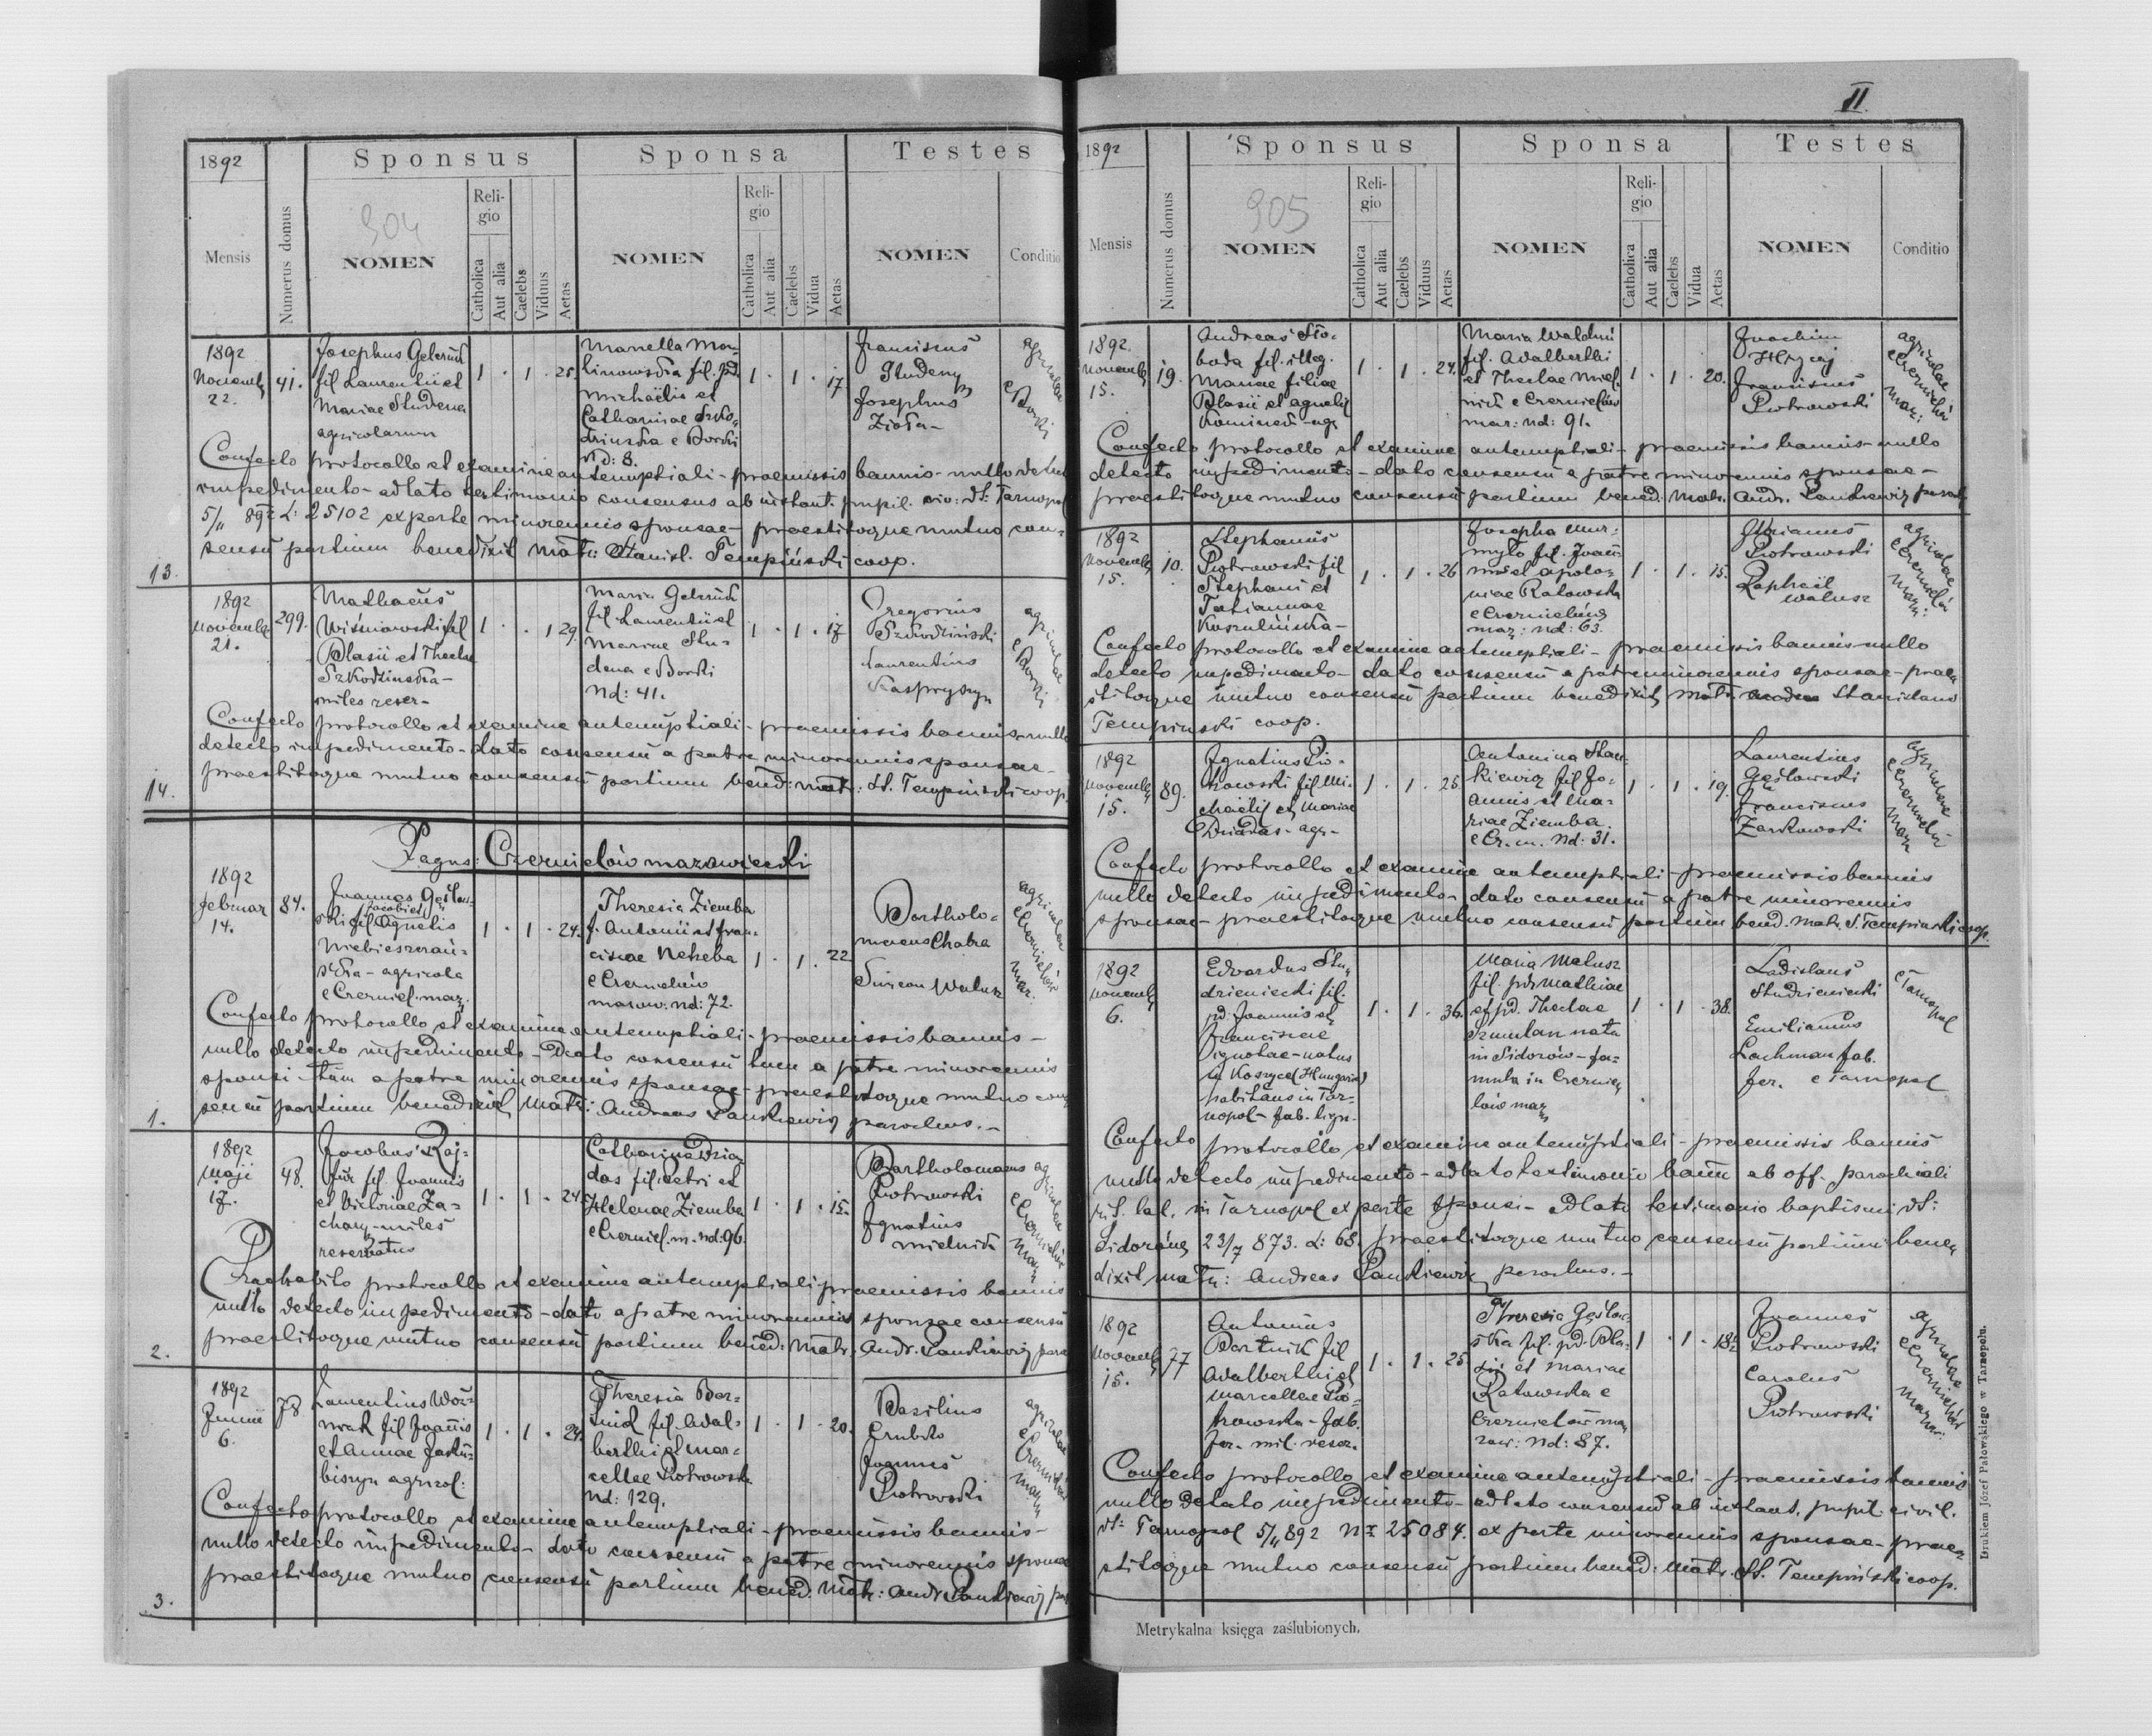 1892
Sponsus
Sponsa
Testes
Mensis
Numerus domus
904
NOMEN
Religio
Catholica
Aut alia
Caelebs
Viduus
Aetas
NOMEN
Religio
Catholica
Aut alia
Caelebs
Vidua
Aetas
NOMEN
Conditio
1892
Novemb
22.
41.
Josephus
fil Laurentii et
Mariae Studena
agricolarum
1 . 1 . 25.
linowska fil.
Michaëlis et
Catharinae
e Borki
Nd: 8.
1 . 1 . 17
Franciscus
Studeny
Josephus
Zioła
agricolae
e Borki
Confecto protocollo et examine antenuptiali - praemissis bannis - nullo
impedimento - adlato testimonio consensus ab
5/11 892 L: 25102 ex parte minorennis sponsae - praestitoque mutuo con-
sensu partium benedixit Matr: Stanisl. Tempiński coop.
13.
1892
Novemb
21.
299.
Mathaeus
Wiśniowski fil
Blasii et Theclae
Szkodzinska -
miles reser-
1 . . 1 29.
Maria
fil Laurentii et
Mariae Stu-
dena e Borki
Nd: 41.
1 . 1 . 17
Gregorius
Szkodziński
Laurentius
Kaspryszyn
agricolae
e Borki
Confecto protocollo et examine antenuptiali - praemissis bannis - nullo
detecto impedimento - dato consensu a patre minorennis sponsae -
praestitoque mutuo consensu partium bened: matr: St. Tempiński coop.
14.
Pagus: Czernielów mazowiecki
1892
Februar
14.
84.
Joannes
Jacobi et
ski fil Agnetis
agricola
e Czerniel. maz.
1 . 1 . 24.
Theresia Ziemba
f. Antonii et Fran-
ciscae
e Czernielów
mazow. nd: 72.
1 . 1 . 22
Bartholo-
maeus Chaba
Simeon Walusz
agricolae
e Czernielów
maz.
Confecto protocollo et examine antenuptiali - praemissis bannis -
nullo detecto impedimento - Dato consensu tum a patre minorennis
sponsi - tum a patre minorennis sponsae - praestitoque mutuo con
sensu partium benedixit Matr: Andreas Pankiewicz parochus. -
1.
1892
Maji
17.
48.
Jacobus
fil Joannis
et Victoriae Za-
chary - miles
reservatus
1 . 1 . 24.
Catharina Dzia
das fil. Petri et
Helenae Ziemba
e Czerniel. m. nd: 96.
1 . 1 . 15.
Bartholomaeus
Piotrowski
Ignatius
Mielnik
agricolae
e Czernielów
maz
protocollo et examine antenuptiali praemissis bannis
nullo detecto impedimento - dato a patre minorennis sponsae consensu
praestitoque mutuo consensu partium bened: Matr: Andr. Pankiewicz
2.
1892
Junii
6.
78
Laurentius Woź-
niak fil Joannis
et Annae
agricol:
1 . 1 . 24.
Theresia Bar-
tnik fil. Adal-
berthi et Mar-
cellae Piotrowska
Nd: 129.
1 . 1 . 20.
Basilius
Joannes
Piotrowski
agricolae
e Czernielów
maz
Confecto protocollo et examine antenuptiali - praemissis bannis -
nullo detecto impedimento - dato consensu a patre minorennis sponsae
praestitoque mutuo consensu partium bened. Matr: Andr. Pankiewicz
3.
II.
1892
Sponsus
Sponsa
Testes
Mensis
Numerus domus
905
NOMEN
Religio
Catholica
Aut alia
Caelebs
Viduus
Aetas
NOMEN
Religio
Catholica
Aut alia
Caelebs
Vidua
Aetas
NOMEN
Conditio
1892.
Novemb
15.
19.
Andreas Sło-
boda fil. illeg.
Mariae filiae
Blasii et Agnetis
1 . 1 . 24.
Maria
fil. Adalberthi
et Theclae Miel-
nik e Czernielów
maz: nd: 91.
1 . 1 . 20.
Joachim
Hrycaj
Franciscus
Piotrowski
agricolae
e Czernielów
maz:
Confecto protocollo et examine antenuptiali - praemissis bannis - nullo
detecto impedimento - dato consensu a patre minorennis sponsae -
praestitoque mutuo consensu partium bened: Matr. Andr. Pankiewicz
1892
Novemb
15.
10.
Stephanus
Piotrowski fil
Stephani et
Tatiannae
1 . 1 . 26
Josepha Mur-
myło fil. Joan-
nis et Apolo-
niae Ratowska
e Czernielów
maz: nd: 63.
1 . 1 . 15.
Florianus
Piotrowski
Raphaël
Walusz
agricolae
e Czernielów
maz:
Confecto protocollo et examine antenuptiali - praemissis bannis nullo
detecto impedimento - dato consensu a patre minorennis sponsae - prae
stitoque mutuo consensu partium benedixit Matr. Stanislaus
Tempinski coop.
1892
Novemb
15.
89.
Ignatius Pio-
trowski fil Mi-
chaëlis et Mariae
Dziadas - agr-
1 . 1 . 25.
Antonina Stan-
kiewicz fil Jo-
annis et Ma-
riae Ziemba.
e Cz. m. Nd: 31.
1 . 1 . 19.
Laurentius
Gęsłowski
Franciscus
Żarkowski
agricolae
e Czernielów
maz
Confecto protocollo et examine antenuptiali - praemissis bannis
nullo detecto impedimento - dato consensu a patre minorennis
sponsae - praestitoque mutuo consensu partium bened. Matr. S. Tempinski coop.
1892
Novemb
6.
Edvardus Stu-
dzieniecki fil.
pd. Joannis et
Franciscae
ignotae - natus
in Koszyce (Hungaria)
habitans in Tar-
nopol - fab. lign.
1 . 1 . 36.
Maria Matusz
fil. pd Mathiae
et pd. Theclae
Szmulan nata
in Sidorów - fa-
mula in Czernie
lów maz
1 . 1 . 38.
Ladislaus
Studzieniecki
Emilianus
Lachman fab.
fer. e Tarnopol
e Tarnopol
Confecto protocollo et examine antenuptiali - praemissis bannis
nullo detecto impedimento - adlato testimonio bann ab off. parochiali
rit. lat. in Tarnopol ex parte sponsi - adlato testimonio baptismi dt:
Sidorów 23/7 873. L: 68. praestitoque mutuo consensu partium bene
dixit Matr: Andreas Pankiewicz parochus. -
1892
Novemb
15.
77
Antonius
Bartnik fil
Adalberthi et
Marcellae Pio-
trowska - fab.
fer. mil. reser.
1 . 1 . 25
Theresia Gęsłow-
ska fil. pd. Bla-
sii et Mariae
Ratowska e
Czernielów ma
zow: Nd: 87.
1 . 1 . 18½
Joannes
Piotrowski
Carolus
Piotrowski
agricolae
e Czernielów
mazow:
Confecto protocollo et examine antenuptiali - praemissis bannis
nullo detecto impedimento - adlato consensu ab instant. pupil. civil.
dt: Tarnopol 5/11 892 Nr 25084. ex parte minorennis sponsae - prae
stitoque mutuo consensu partium bened: Matr. St. Tempiński coop.
Metrykalna księga zaślubionych.
Drukiem Józef Pałowskiego w Tarnopolu.